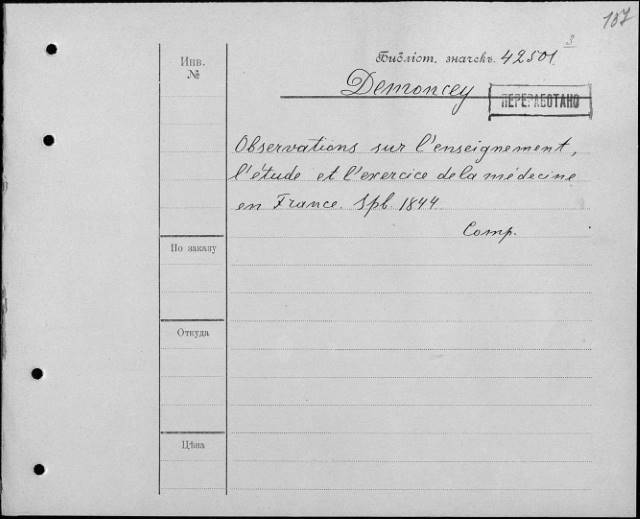 157
Инв. №
Библіот. значекъ 42501 3
Demoncey
ПЕРЕРАБОТАНО
Observations sur l'enseignement,
l'étude et l'exercice de la médecine
en France. Spb. 1844
Comp.
По заказу
Откуда
Цѣна